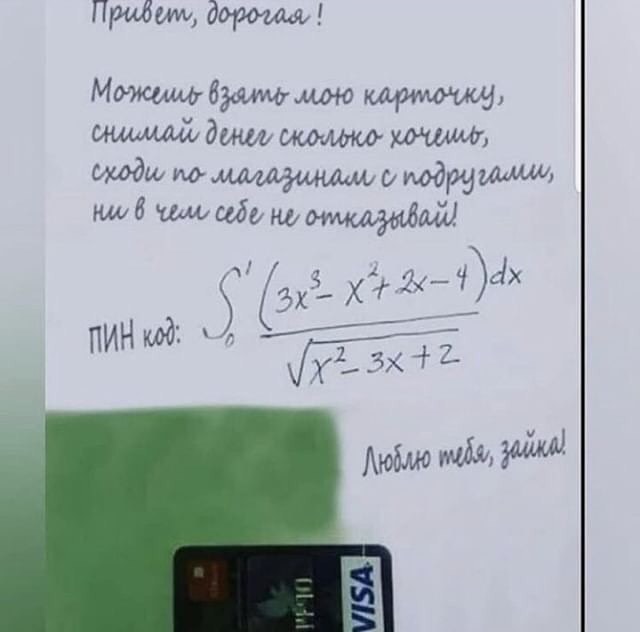 Привет, дорогая!
Можешь взять мою карточку,
снимай денег сколько хочешь,
сходи по магазинам с подругами,
ни в чем себе не отказывай!
ПИН код: ∫₀¹ (3x³ − x² + 2x − 4)dx
√x² − 3x + 2
Люблю тебя, зайка!
VISA